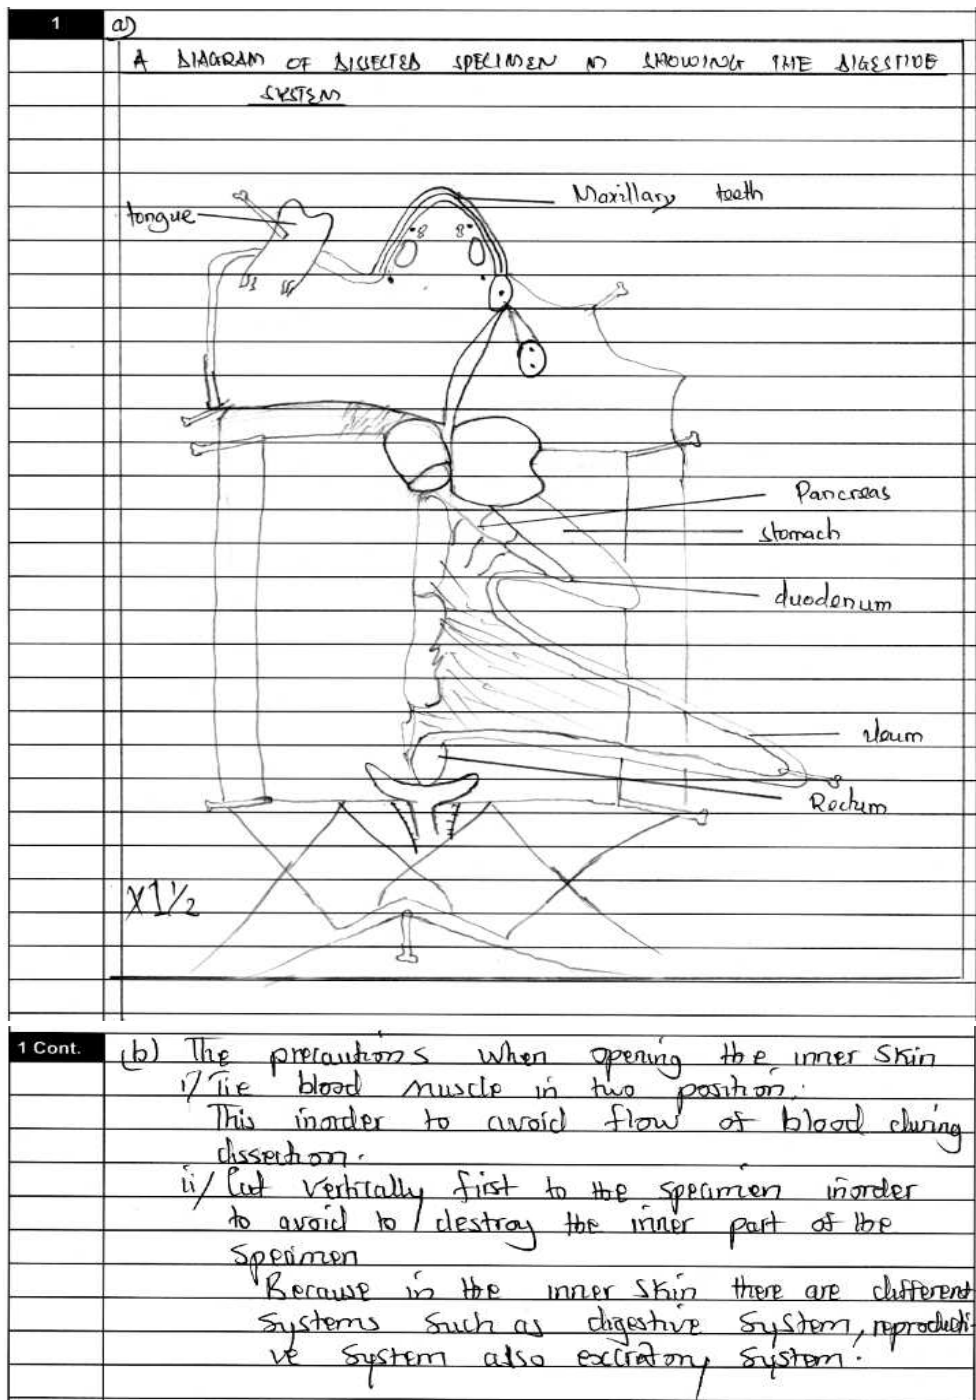 1
a)
A DIAGRAM OF DISSECTED SPECIMEN M SHOWING THE DIGESTIVE
SYSTEM
Maxillary teeth
tongue
Pancreas
stomach
duodenum
ileum
Rectum
X1½
1 Cont.
(b) The precautions when opening the inner skin
i/ Tie blood muscle in two position.
This inorder to avoid flow of blood during
dissection.
ii/ Cut vertically first to the specimen inorder
to avoid to / destroy the inner part of the
specimen
Because in the inner skin there are different
systems such as digestive system, reproducti-
ve system also excretory system.